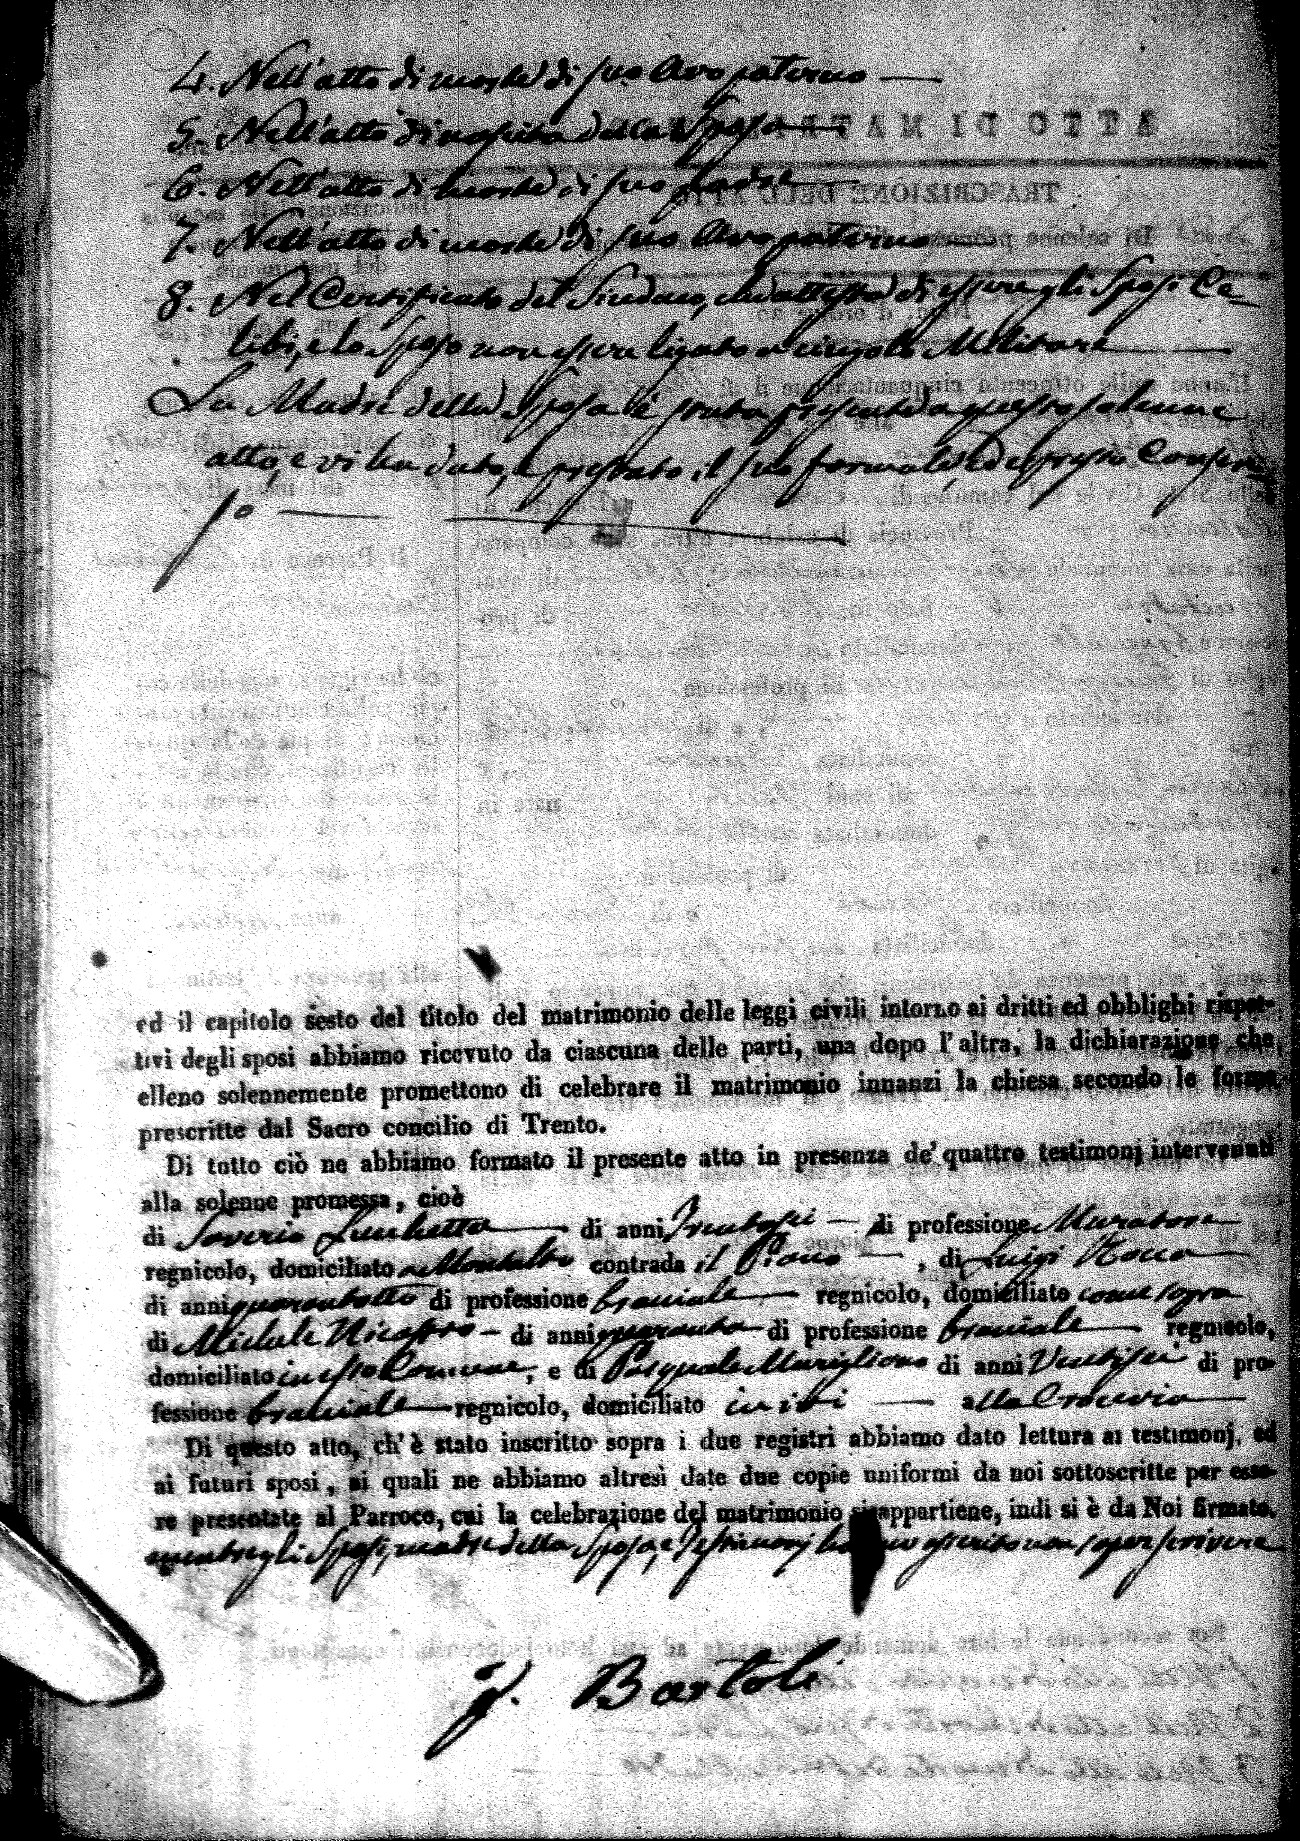 4. Nell'atto di morte di suo Avo paterno
5. Nell'atto di nascita della Sposa
6. Nell'atto di morte di suo padre
7. Nell'atto di morte di suo Avo paterno
8. Nel Certificato del Sindaco, che attesta di essere gli Sposi Ce-
libi, e lo Sposo non essere ligato a vincolo Militare
La Madre della Sposa è presente a questo solenne
atto, e vi ha dato, e prestato il suo formale, ed espresso Consen-
so
ed il capitolo sesto del titolo del matrimonio delle leggi civili intorno ai dritti ed obblighi rispet-
tivi degli sposi abbiamo ricevuto da ciascuna delle parti, una dopo l'altra, la dichiarazione che
elleno solennemente promettono di celebrare il matrimonio innanzi la chiesa secondo le forme
prescritte dal Sacro concilio di Trento.
Di tutto ciò ne abbiamo formato il presente atto in presenza de' quattro testimonj intervenuti
alla solenne promessa, cioè
di Saverio Luchetta di anni Trentasei di professione Muratore
regnicolo, domiciliato a Montalto contrada il Piano, di Luigi Rocco
di anni quarantotto di professione bracciale regnicolo, domiciliato come sopra
di Michele Nicastro di anni quaranta di professione bracciale regnicolo,
domiciliato in esso Comune, e di Pasquale Marigliano di anni Ventisei di pro-
fessione bracciale regnicolo, domiciliato in ivi alla Crocevia
Di questo atto, ch'è stato inscritto sopra i due registri abbiamo dato lettura ai testimonj, ed
ai futuri sposi, ai quali ne abbiamo altresì date due copie uniformi da noi sottoscritte per esse-
re presentate al Parroco, cui la celebrazione del matrimonio si appartiene, indi si è da Noi firmato.
mentre gli Sposi, madre della Sposa, e Testimonj hanno asserito non saper scrivere
Bartoli